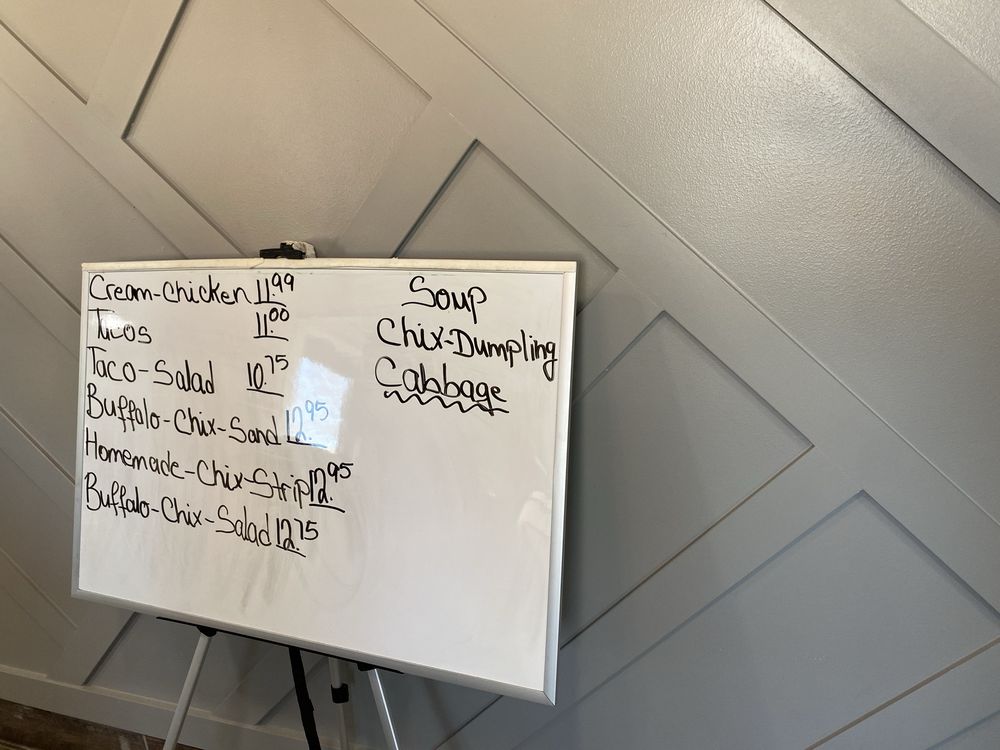 Cream-Chicken 11.99
Tacos 11.00
Taco-Salad 10.75
Buffalo-Chix-Sand 12.95
Homemade-Chix-Strip 12.95
Buffalo-Chix-Salad 12.75
Soup
Chix-Dumpling
Cabbage